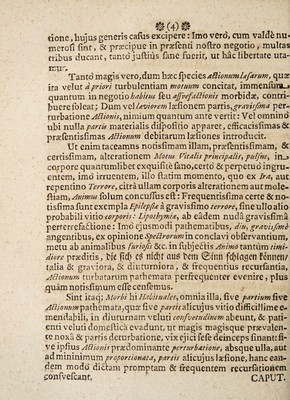 (4)
tione, hujus generis casus excipere: Imo verò, cum valdè nu-
merosi sint, & præcipue in præsenti nostro negotio, multas
tribus ducant, tantò justius sane fuerit, ut hâc libertate uta-
mur.
Tantò magis vero, dum hæc species Actionum læsarum, quæ
ita velut à priori turbulentiam motuum concitat, immensum
quantum in negotio habitus seu assuefactionis morbidæ, contri-
buere soleat; Dum vel læviorem læsionem partis, gravissima per-
turbatione Actionis, nimium quantum ante vertit: Vel omninò
ubi nulla partis materialis dispositio apparet, efficacissimas &
præsentissimas Actionum debitarum læsiones introducit.
Ut enim taceamus notissimam illam, præsentissimam, &
certissimam, alterationem Motus Vitalis principalis, pulsus, in
corpore quantumlibet exquisitè sano, certò & perpetuò ingru-
entem, imò irruentem, illo statim momento, quo ex Ira, aut
repentino Terrore, citrà ullam corporis alterationem aut mole-
stiam, Animus solum concussus est: Frequentissima certe & no-
tissima sunt exempla Epilepsiæ à gravissimo terrore, sine ullo alio
probabili vitio corporis: Lipothymiæ, ab eâdem nudâ gravissimâ
perterrefactione: Imò ejusmodi pathematibus, diu, gravissimè
angentibus, ex opinione Spectrorum in conclavi obversantium,
metu ab animalibus furiosis &c. in subjectis Animo tantùm timi-
diore præditis, die sich es nicht aus dem Sinn schlagen können/
talia & graviora, & diuturniora, & frequentius recursantia,
Actionum turbatarum pathemata perfrequenter evenire, plus
quàm notissimum esse censemus.
Sint itaq; Morbi hi Habituales, omnia illa, sive partium sive
Actionum pathemata, quæ sive partis alicujus vitio difficillime e-
mendabili, in diuturnam veluti consvetudinem abeunt, & pati-
enti veluti domestica evadunt, ut magis magisque prævalen-
te noxâ & partis deturbatione, vix ejici sese deinceps sinant: si-
ve ipsius Actionis prædominante perturbatione, absque ulla, aut
ad minimum proportionata, partis alicujus læsione, hanc ean-
dem modò dictam promptam & frequentem recursationem
consvescant.
CAPUT.